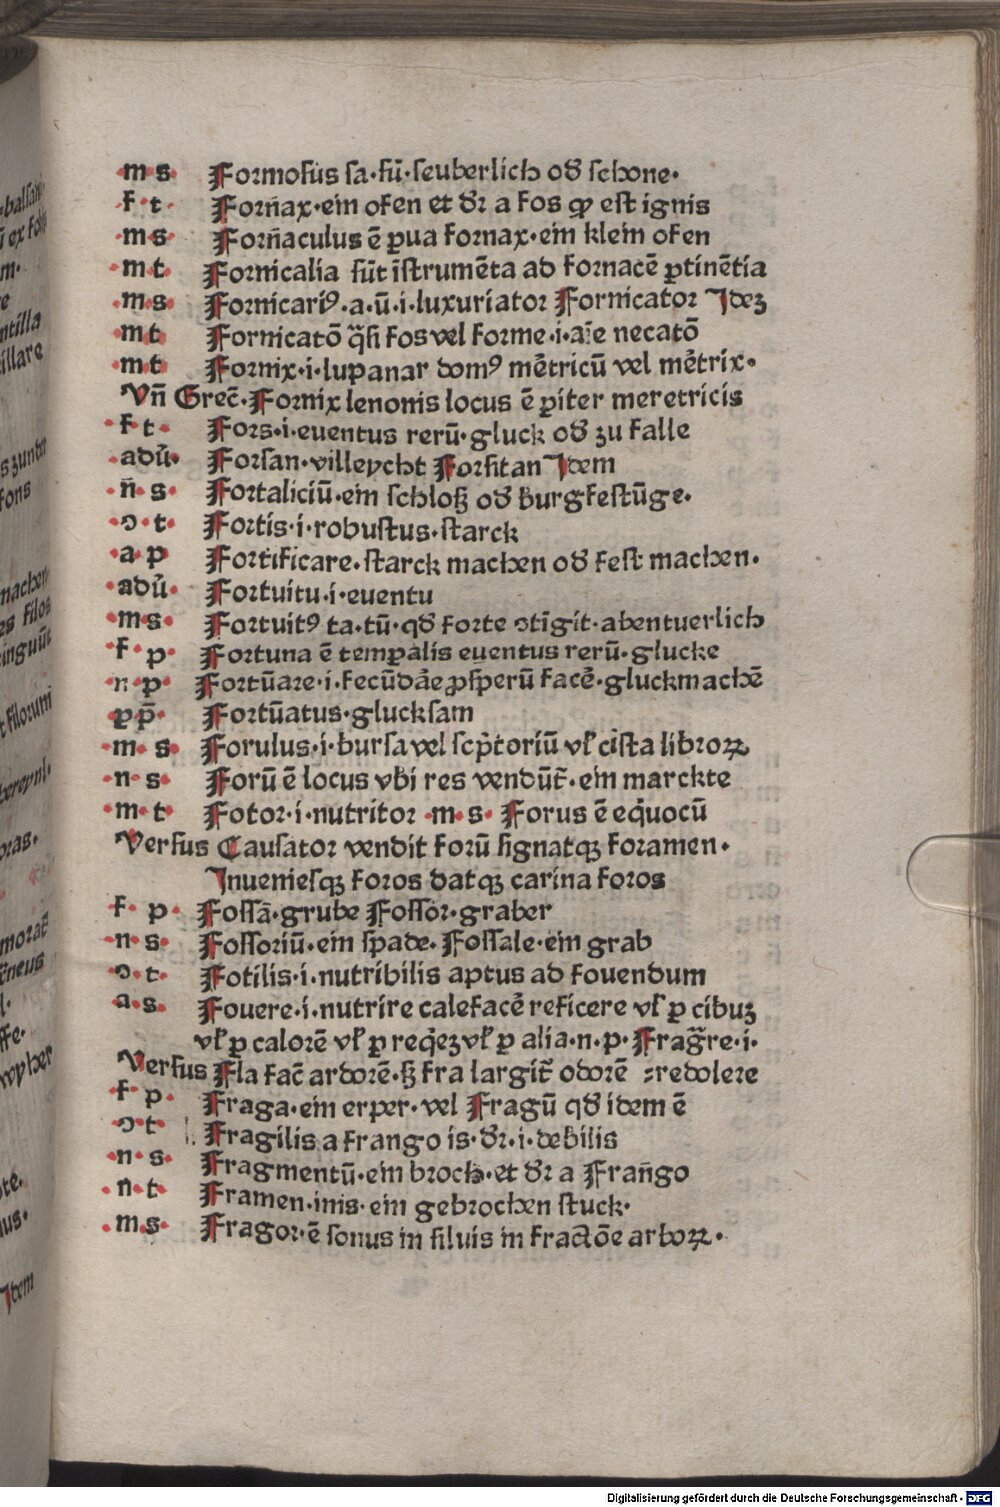 ·m·s· Formosus sa·sū·seuberlich od̕ schone·
·f·t· Forn̄ax·ein ofen et dr̄ a fos qp̄ est ignis
·m·s· Forn̄aculus ē pua fornax·ein klein ofen
·m·t· Fornicalia sūt īstrumēta ad fornacē ꝑtinētia
·m·s· Fornicariꝰ·a·ū·i·luxuriator Fornicator Ideʒ
·mt· Fornicatō q̄si fos vel forme·i·aīe necatō
·m·t· Fornix·i·lupanar domꝰ mētricū vel mētrix·
Vn̄ Grec̄·Fornix lenonis locus ē ꝑiter meretricis
·f·t· Fors·i·euentus rerū·gluck od̕ zu falle
·adū· Forsan·villeycht Forsitan Idem
·n̄·s· Fortaliciū·ein schloß od̕ burgfestūge·
·ɔ·t· Fortis·i·robustus·starck
·a·p Fortificare·starck machen od̕ fest machen·
·adū· Fortuitu·i·euentu
·m·s· Fortuitꝰ ta·tū·qd̕ forte ɔtīgit·abentuerlich
·f·p· Fortuna ē temꝑalis euentus rerū·glucke
·n·p· Fortūare·i·fecūdāe ꝓsperū facē·gluckmachē
ꝑp̄· Fortūatus·glucksam
·m·s· Forulus·i·bursa vel scp̄toriū vł cista libroꝝ
·n·s· Forū ē locus vbi res vendūt̄·ein marckte
·m·t· Fotor·i·nutritor ·m·s· Forus ē eq̄uocū
Versus Causator vendit forū signatqꝫ foramen·
Inueniesqꝫ foros datqꝫ carina foros
f·p· Fossā·grube Fossōr·graber
·n·s· Fossoriū·ein spade·Fossale·ein grab
·ɔ·t· Fotilis·i·nutribilis aptus ad fouendum
·a·s· Fouere·i·nutrire calefacē reficere vł ꝑ cibuʒ
vł ꝑ calorē vł ꝑ req̄eʒ vł ꝑ alia·n·p·Fragr̄e·i·
Versus Fla fac̄ ardorē·ß fra largit̄ odorē ⸗redolere
f·p· Fraga·ein erper·vel Fragū qd̕ idem ē
·ɔ·t· Fragilis a frango is·dr̄·i·debilis
·n·s· Fragmentū·ein broch·et dr̄ a Fran̄go
·n·t· Framen·inis·ein gebrochen stuck·
·m·s· Fragor·ē sonus in siluis in fractōe arboꝝ·
Digitalisierung gefördert durch die Deutsche Forschungsgemeinschaft · DFG